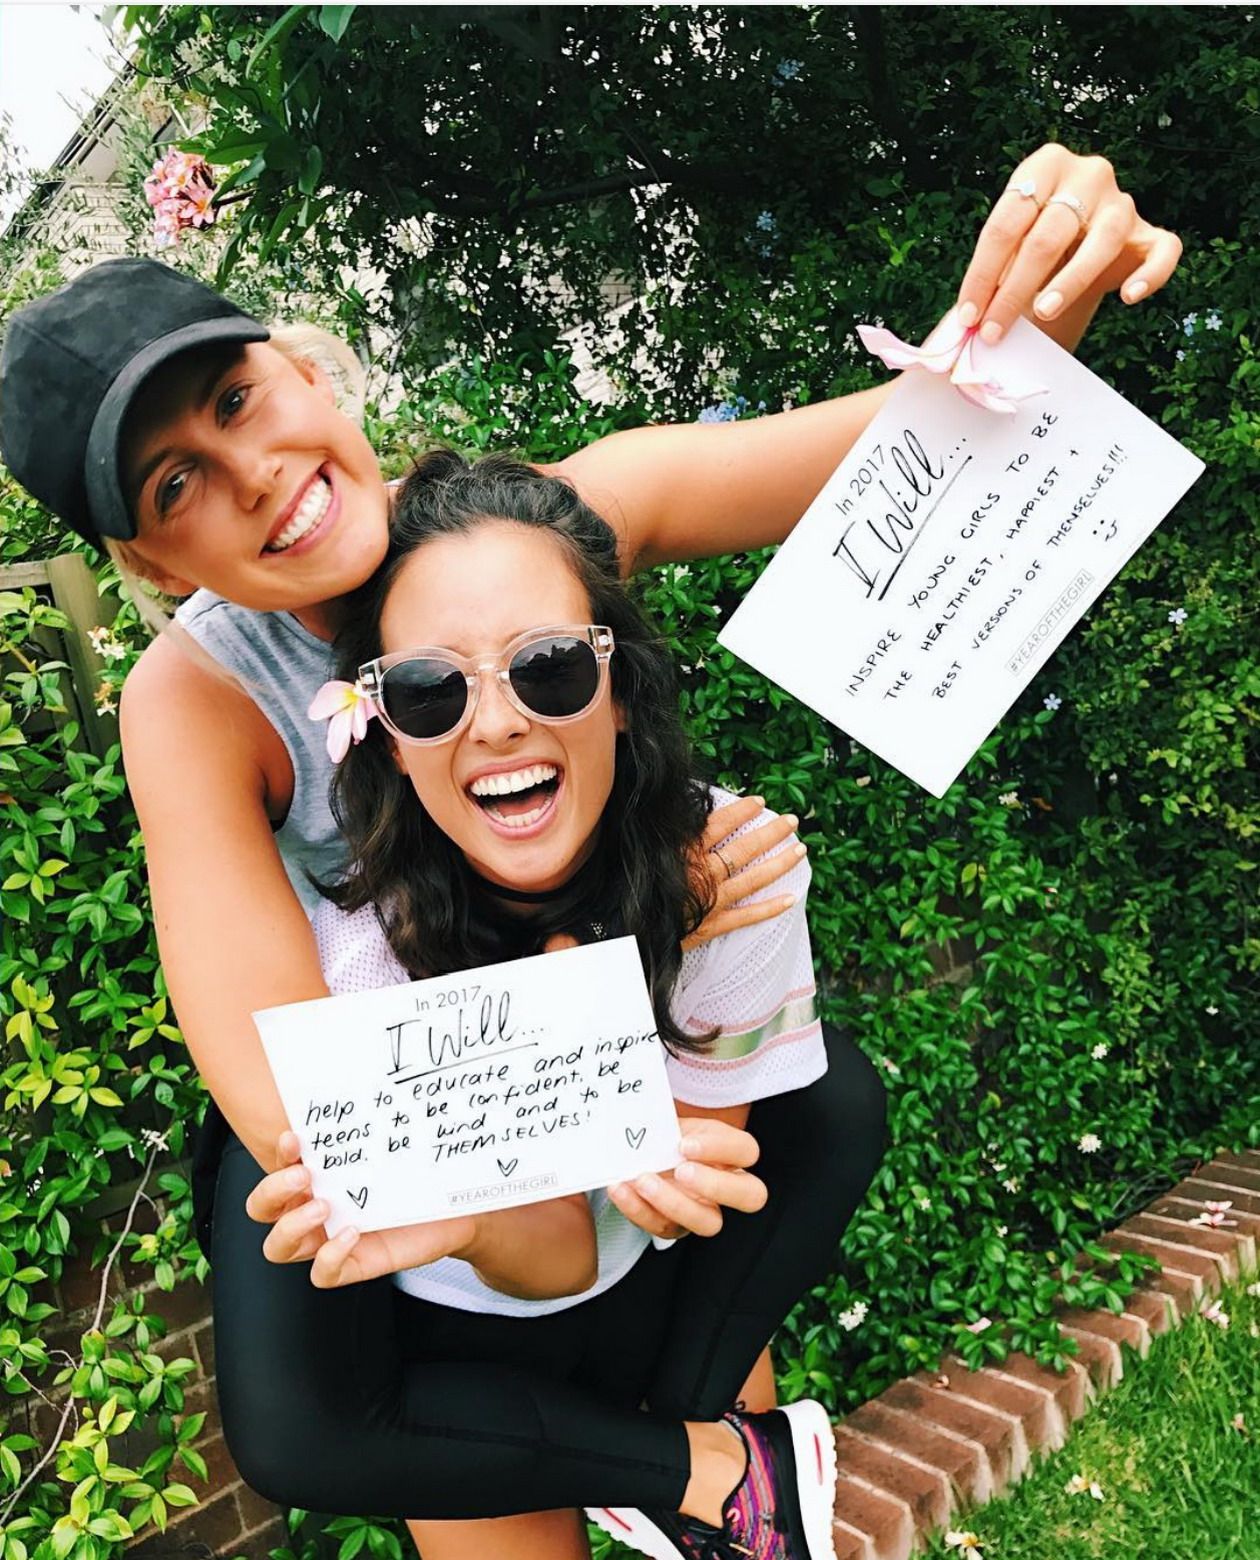 In 2017
I Will...
INSPIRE YOUNG GIRLS TO BE
THE HEALTHIEST, HAPPIEST +
BEST VERSIONS OF THEMSELVES!!!
#YEAROFTHEGIRL
In 2017
I Will...
help to educate and inspire
teens to be confident, be
bold, be kind and to be
THEMSELVES!
#YEAROFTHEGIRL